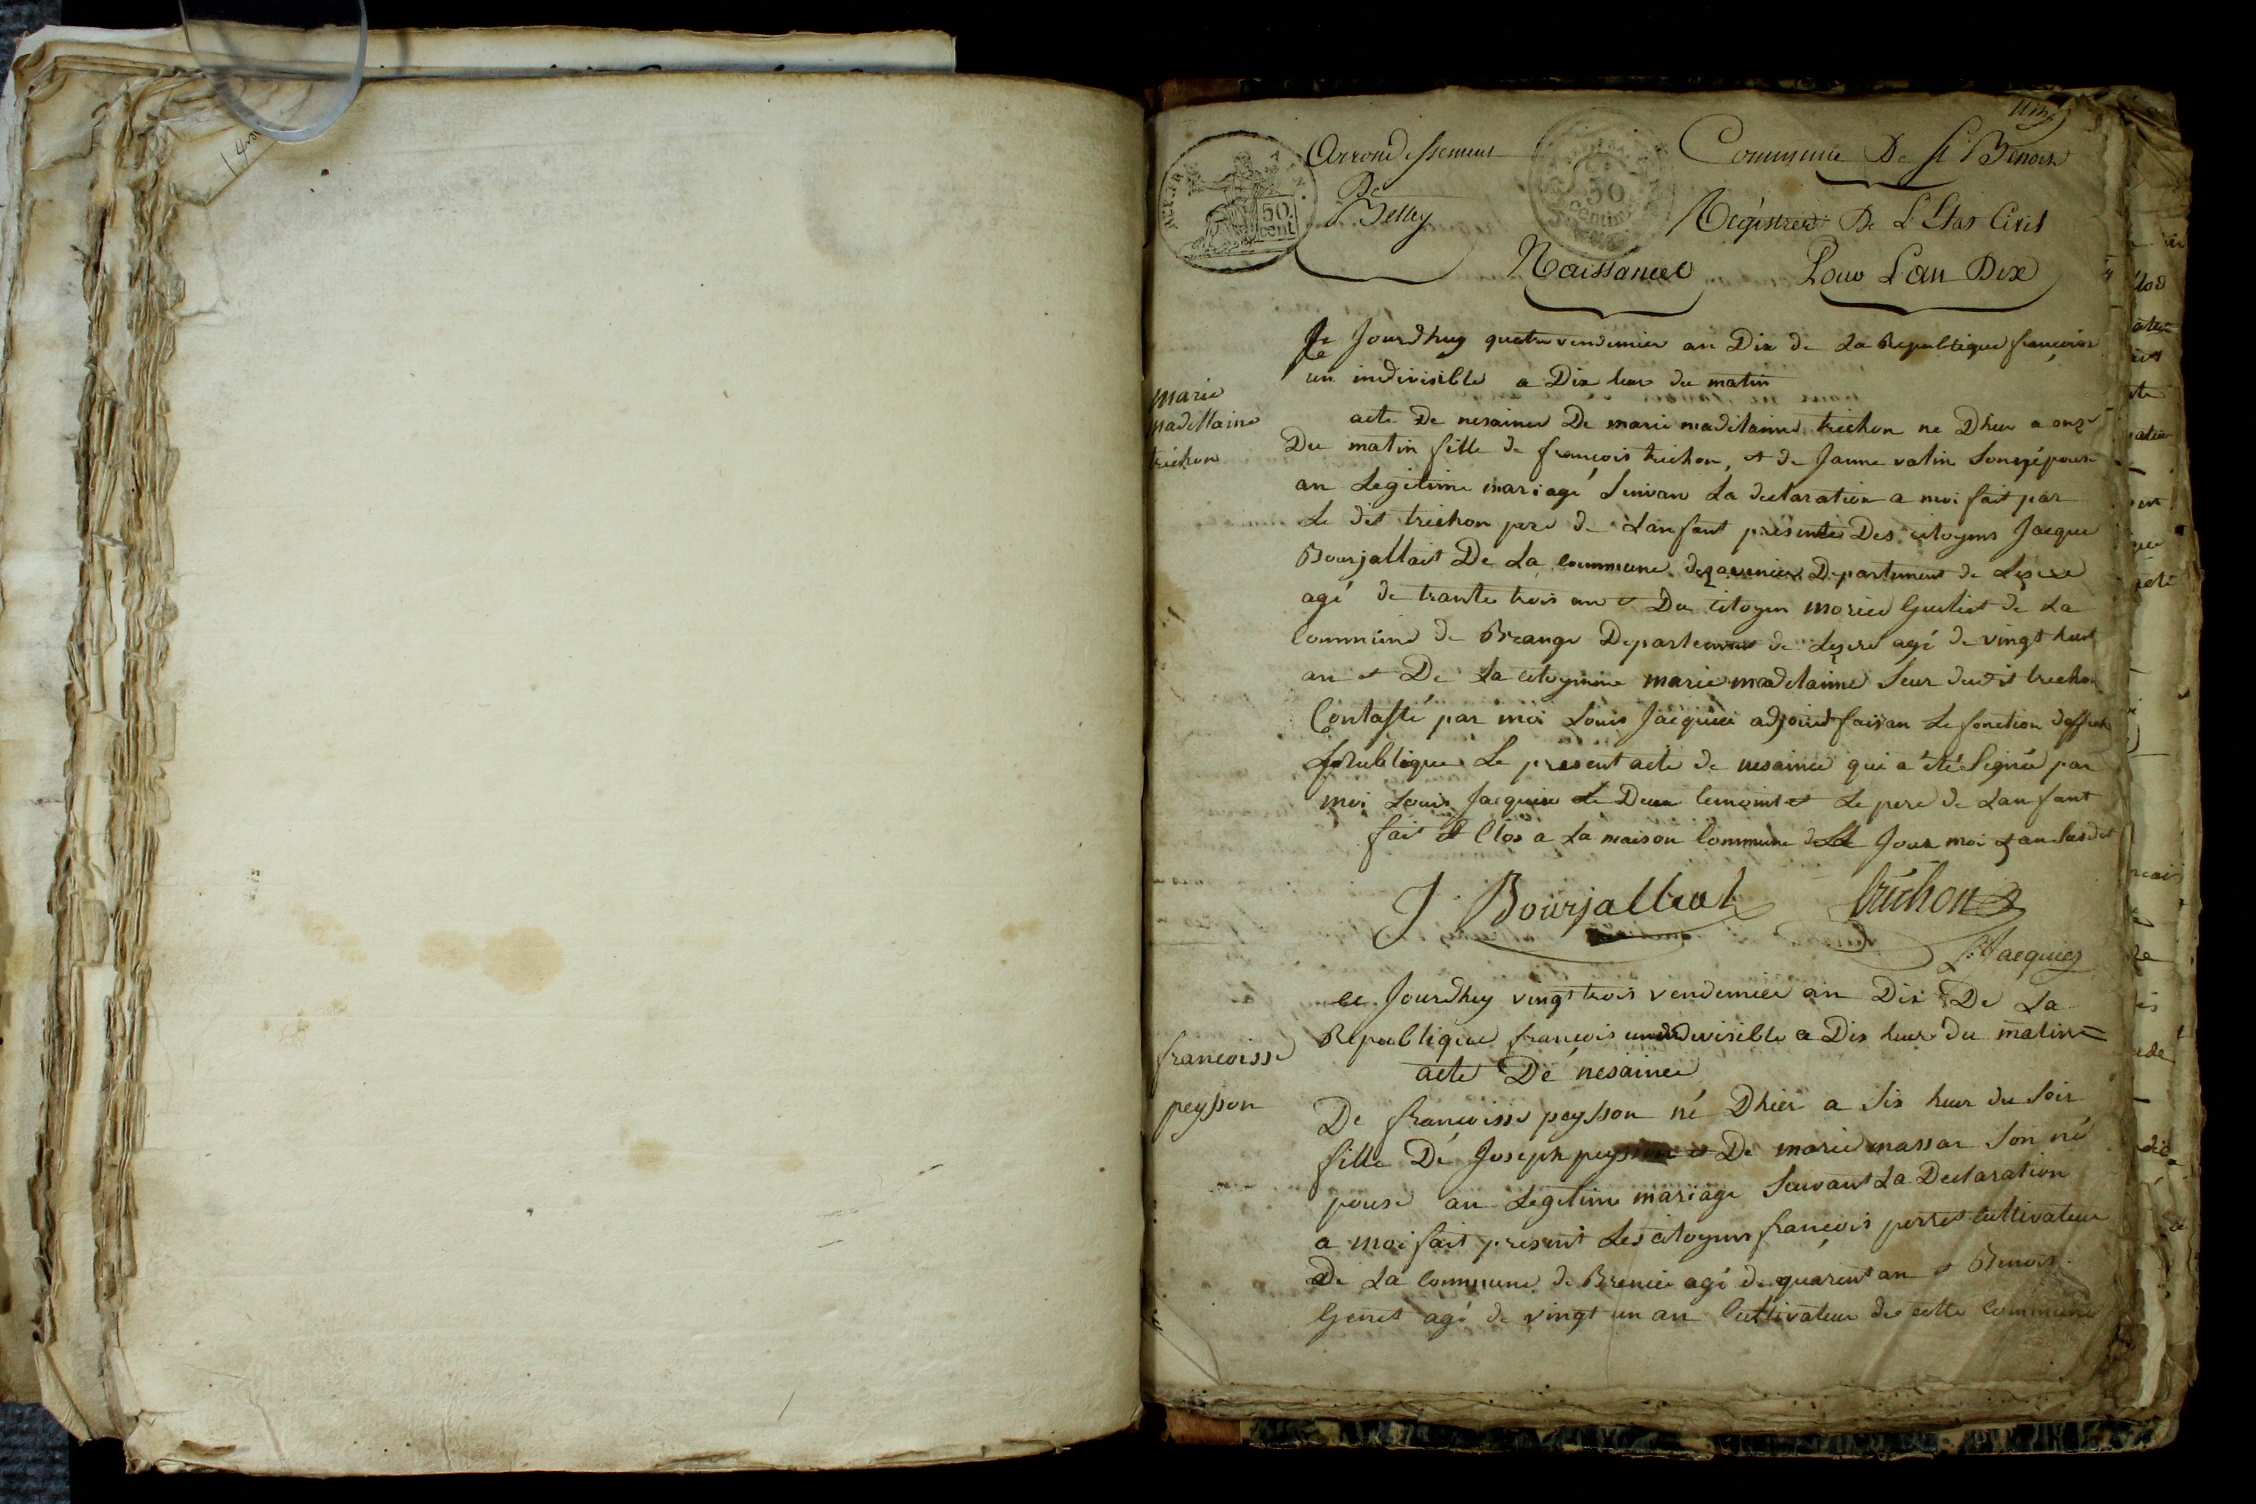 Arrondissement
De
Belley
Commune De St Benoit
Régistre De L'Etat Civil
Naissance
Pour L'an Dix
50
cent
50
centimes
Ce Jourdhuy quatre vendemier an Dix de La Republique françoise
un indivisible a Dix heur du matin
marie
madellaine
trichon
acte De nesaince De marie madelainne trichon né Dhier a onze
Du matin fille de françois trichon, et de Janne vatin Son népouse
an Legitime mariagé Suivan La declaration a moi fait par
Le dit trichon pere de Lanfant présente Des citoyens Jacque
Bourjallait De La commune Departement de Lisere
agé de trante trois an et Du citoyen morice Guiliet de La
commune de Brange Departement de Lisere agé de vingt huit
an et De La citoyenne marie madelainne Seur dudit trichon
Contasté par moi Louis Jacquier adjoint faisan Le fonction
publique Le present acte de nesaince qui a été Signée par
moi Louis Jacquier Le Deux temoint et Le pere de Lanfant
fait et Clos a La maison Commune Le Jour moi et an Susdit
J Bourjallait trichon
L. Jacquier
ce Jourdhuy vingt trois vendemier an Dix De La
Republique francois un indivisible a Dix heur du matin =
francoisse
peysson
acte De nesaince
De francoisse peysson né Dhier a Six heur du Soir
fille De Joseph peysson et De marie massar Son né
pouse an Legetime mariage Suivant La Declaration
a moi fait present Les citoyens françois perret cultivateur
De La commune de Brenier agé de quarent an et Benoit
Genet agé de vingt un an Cultivateur de cette Commune